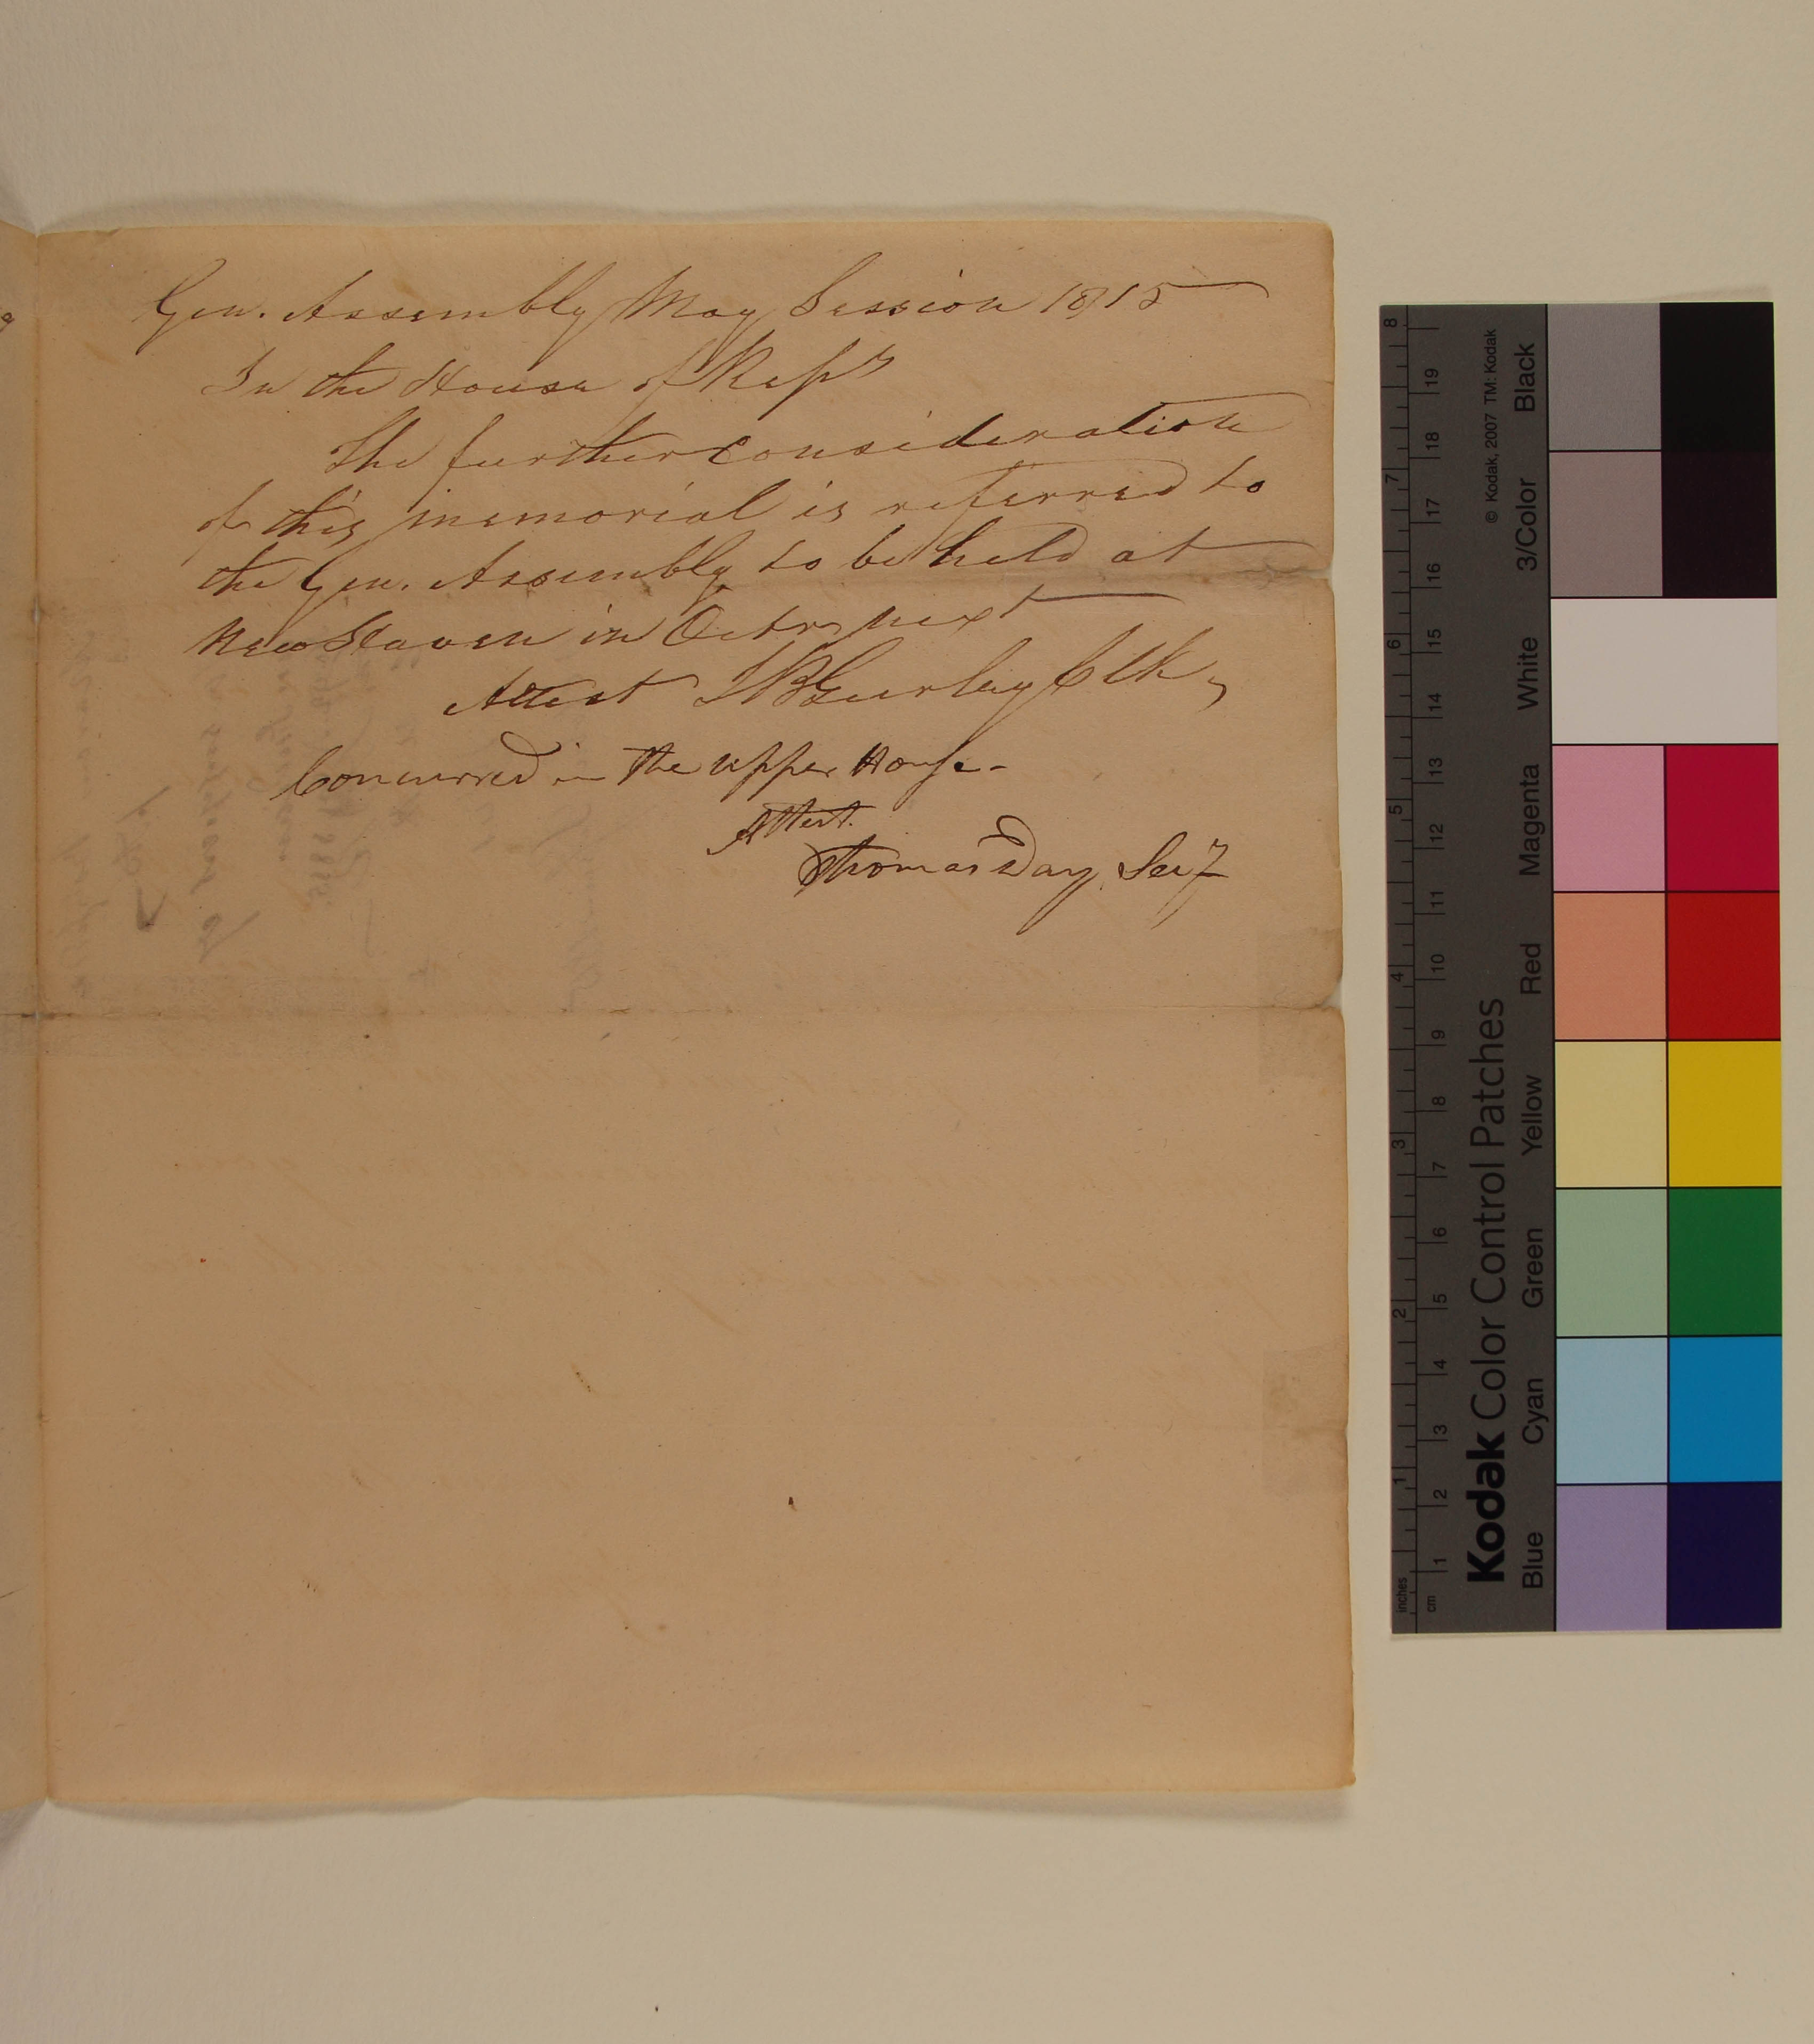 Gen. Assembly May Session 1815
In the House of Reps
The further consideration
of this memorial is referred to
the Gen. Assembly to be held at
New Haven in Octr next
Attest J B Gurley Clk,
Concurred in the upper House.
Attest.
Thomas Day, Secy
Kodak Color Control Patches
© Kodak, 2007 TM: Kodak
Blue Cyan Green Yellow Red Magenta White 3/Color Black
inches 1 2 3 4 5 6 7 8
cm 1 2 3 4 5 6 7 8 9 10 11 12 13 14 15 16 17 18 19